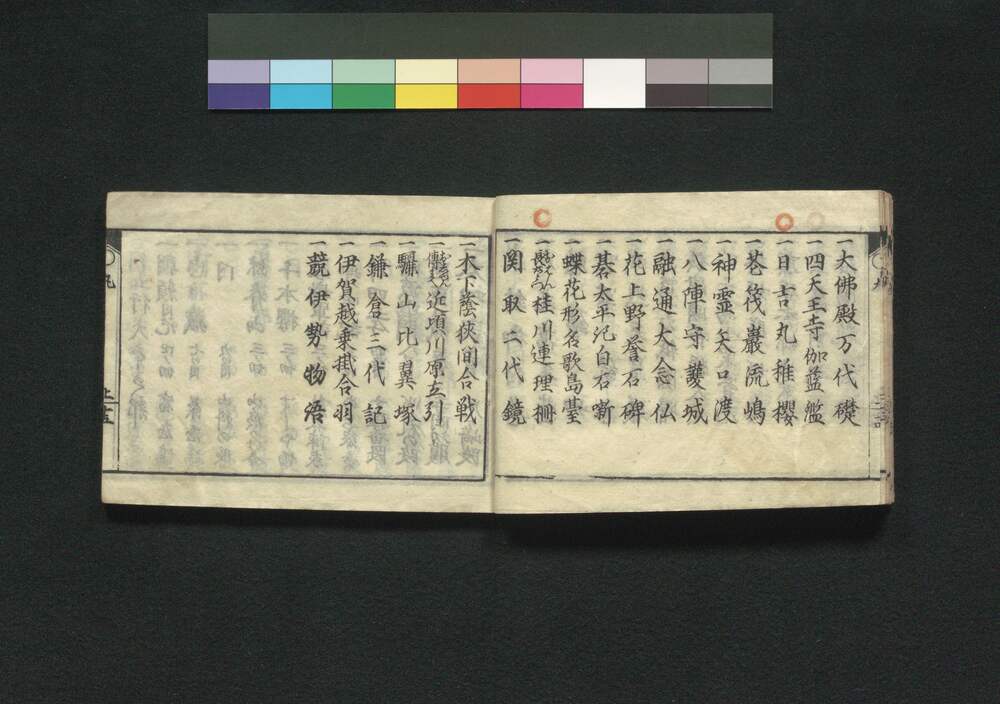 一大佛殿万代礎
一四天王寺伽藍鑑
一日吉丸稚櫻
一苍筏巖流嶋
一神霊矢口渡
一八陣守護城
一融通大念仏
一花上野誉石碑
一碁太平記白石噺
一蝶花形名歌島䑓
一桂川連理柵
一関取二代鏡
一木下蔭狭间合戦
一近頃川原立引
一驪山比翼塚
一鎌倉三代記
一伊賀越乗掛合羽
一競伊勢物语